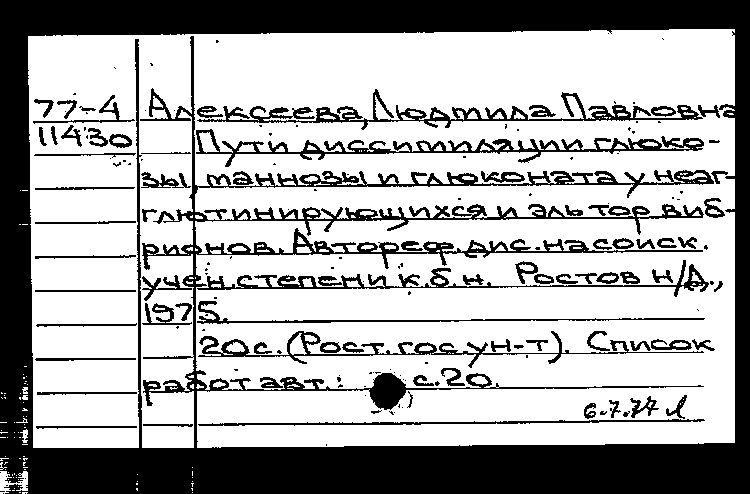 77-4 Алексеева, Людмила Павловна
11430 Пути диссимиляции глюко-
зы, маннозы и глюконата у неаг-
глютинирующихся и эль тор виб-
рионов. Автореф. дис. на соиск.
учен. степени к.б.н. Ростов н/Д.,
1975.
20 с. (Рост. гос. ун-т). Список
работ авт.: с.20.
6.7.77